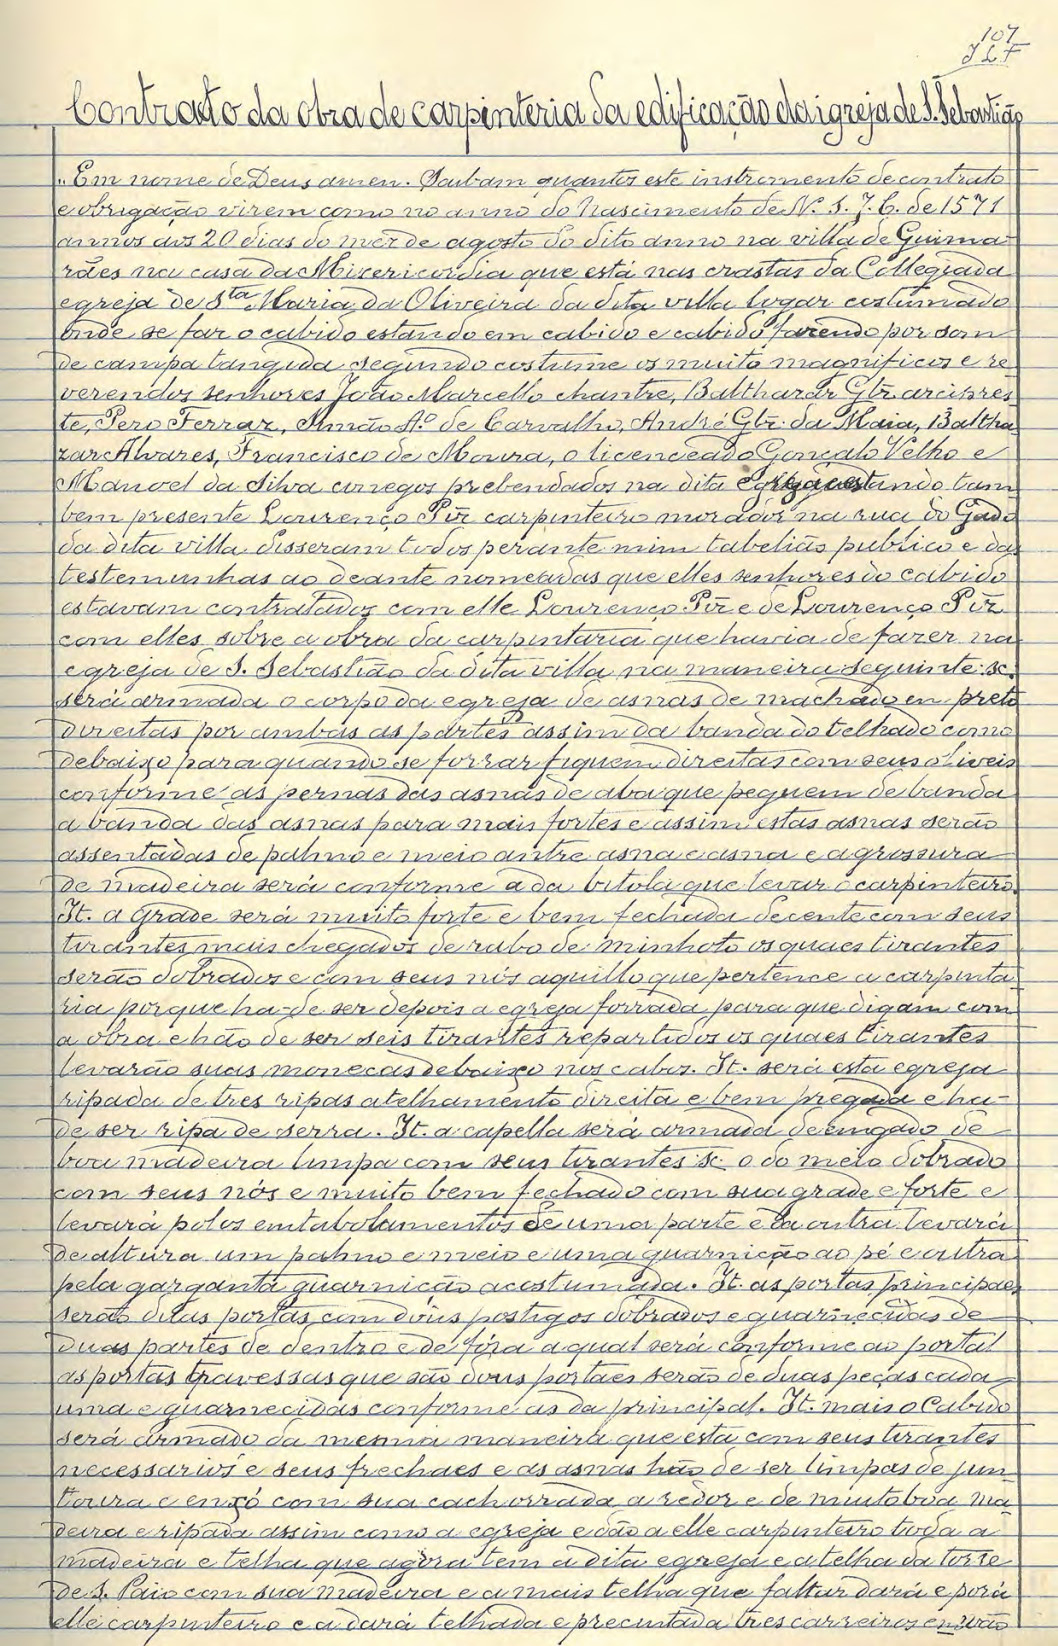 107
J L F
Contrato da obra de carpinteria da edificação da igreja de S. Sebastião
"Em nome de Deus amen. Saibam quantos este instromento de contrato
e obrigação virem como no anno do Nascimento de N. S. J. C. de 1571
annos aos 20 dias do mez de agosto do dito anno na villa de Guima-
rães na casa da Misericordia que está nas crastas da Collegiada
egreja de Sta Maria da Oliveira da dita villa logar costumado
onde se faz o cabido estando em cabido e cabido fazendo por som
de campa tangida segundo costume os muito magnificos e re-
verendos senhores João Marcello chantre, Balthazar Glz. arcipres-
te, Pero Ferraz, Simão A.º de Carvalho, André Glz. da Maia, Baltha-
zar Alvares, Francisco de Moura, o licenceado Gonçalo Velho e
Manoel da Silva conegos prebendados na dita egreja estando tam-
bem presente Lourenço Piz carpinteiro morador na rua do Gado
da dita villa disseram todos perante mim tabelião publico e das
testemunhas ao deante nomeadas que elles senhores do cabido
estavam contratados com elle Lourenço Piz e de Lourenço Piz
com elles sobre a obra da carpintaria que havia de fazer na
egreja de S. Sebastião da dita villa na maneira seguinte: sc.
será armada o corpo da egreja de asnas de machado em preto
direitas por ambas as partes assim da banda do telhado como
debaixo para quando se forrar fiquem direitas com seus oliveis
conforme as pernas das asnas de aba que peguem de banda
a banda das asnas para mais fortes e assim estas asnas serão
assentadas de palmo e meio antre asna e asna e a grossura
de madeira será conforme a da bitola que levar o carpinteiro.
It. a grade será muito forte e bem fechada decente com seus
tirantes mais chegados de rabo de minhoto os quaes tirantes
serão dobrados e com seus nós aquillo que pertence a carpinta-
ria porque ha-de ser depois a egreja forrada para que digam com
a obra e hão de ser seis tirantes repartidos os quaes tirantes
levarão suas monecas debaixo nos cabos. It. será esta egreja
ripada de tres ripas a telhamento direita e bem pregada e ha-
de ser ripa de serra. It. a capella será armada de engado de
boa madeira limpa com seus tirantes sc. o do meio dobrado
com seus nós e muito bem fechado com sua grade e forte e
levará polos emtabolamentos de uma parte e da outra levará
de altura um palmo e meio e uma guarnição ao pé e outra
pela garganta guarnição acostumada. It. as portas principaes
serão ditas portas com dous postigos dobrados e guarnecidas de
duas partes de dentro e de fóra a qual será conforme ao portal
as portas travessas que são dous portaes serão de duas peças cada
uma e guarnecidas conforme as da principal. It. mais o Cabido
será armado da mesma maneira que está com seus tirantes
necessarios e seus frechaes e as asnas hão de ser limpas de jun-
toura e enxó com sua cachorrada a redor e de muito boa ma-
deira e ripada assim como a egreja e dão a elle carpinteiro toda a
madeira e telha que agora tem a dita egreja e a telha da torre
de S. Paio com sua madeira e a mais telha que faltar dará e porá
elle carpinteiro e a dará telhada e precintada tres carreiros